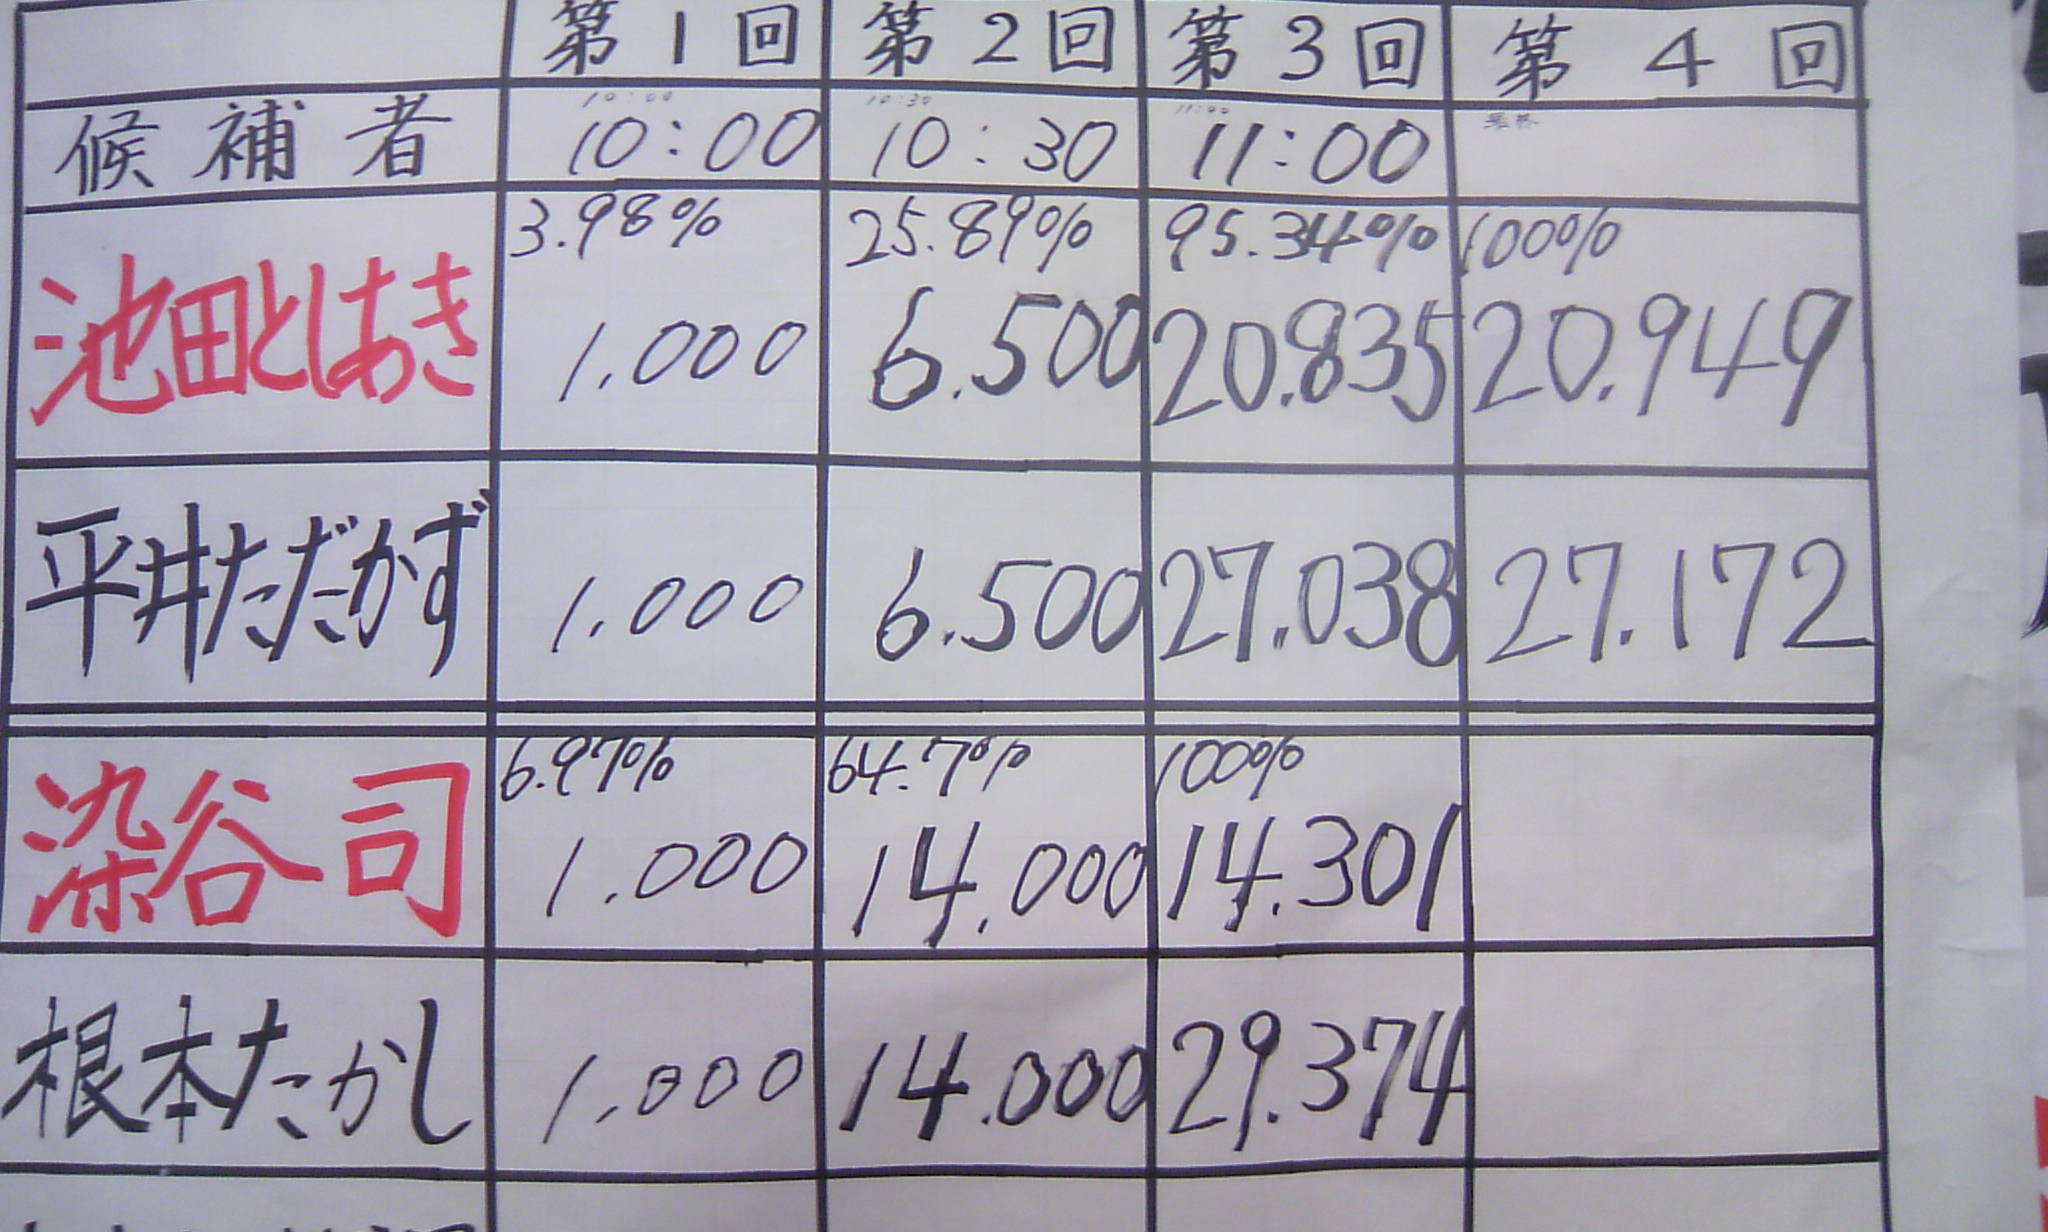 第1回 第2回 第3回 第4回
10:00 10:30 11:00
候補者 10:00 10:30 11:00
3.98% 25.89% 95.34% 100%
池田としあき 1.000 6.500 20.835 20.949
平井ただかず 1.000 6.500 27.038 27.172
6.97% 64.7% 100%
染谷司 1.000 14.000 14.301
根本たかし 1.000 14.000 29.374